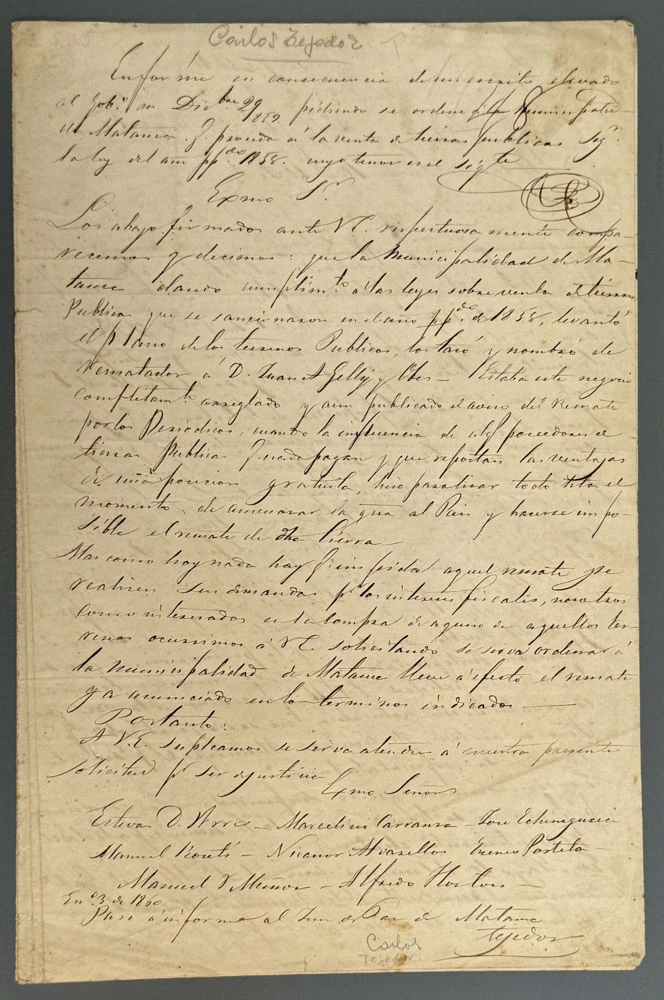 Carlos Tejedor
Informe en consecuencia de un escrito elevado
al Gob.º en Dic.bre 29/1859 pidiendo se ordene á la Municipalid.
de Matanza q. proceda á la venta de tierras publicas seg.n
la ley del año pp.do 1858. cuyo tenor es el sig.te
Exmo S.r
Los abajo firmados ante VE. respetuosamente compa-
recemos y decimos: que la Municipalidad de Ma-
tanza dando cumplim.to á las leyes sobre venta de tierras
Publicas que se sancionaron en el año pp.do de 1858, levantó
el plano de los terrenos Publicos, los tasó y nombró de
Rematador á D. Juan A Gelly y Obes - Estaba este negocio
completam.te arreglado y aun publicado el aviso del Remate
por los Periodicos, cuando la influencia de los poseedores de
tierras Publicas q. nada pagan y que reportan las ventajas
de una posesion gratuita, hizo paralizar todo hta el
momento de amenazar la grra al Pais y hacerse impo-
sible el remate de dha tierra
Mas como hoy nada hay q. impida aquel remate y se
realizen sus demandas p.r los intereses fiscales, nosotros
como interesados en la compra de alguno de aquellos ter-
renos ocurrimos á VE solicitando se sirva ordenar á
la Municipalidad de Matanza lleve á efecto el remate
ya anunciado en los terminos indicados —
Portanto:
A V.E. suplicamos se sirva atender á nuestra presente
solicitud p.r ser de justicia
Exmo Señor
Estevan D. - Marcelino Carranza - Jose Echenagucia
Manuel - Nicanor - Ireneo Portela
Manuel Muñoz - Alfredo
En.º 3 de 1860
Pase á informe al Juez de Paz de Matanza
Tejedor
Carlos
Tejedor